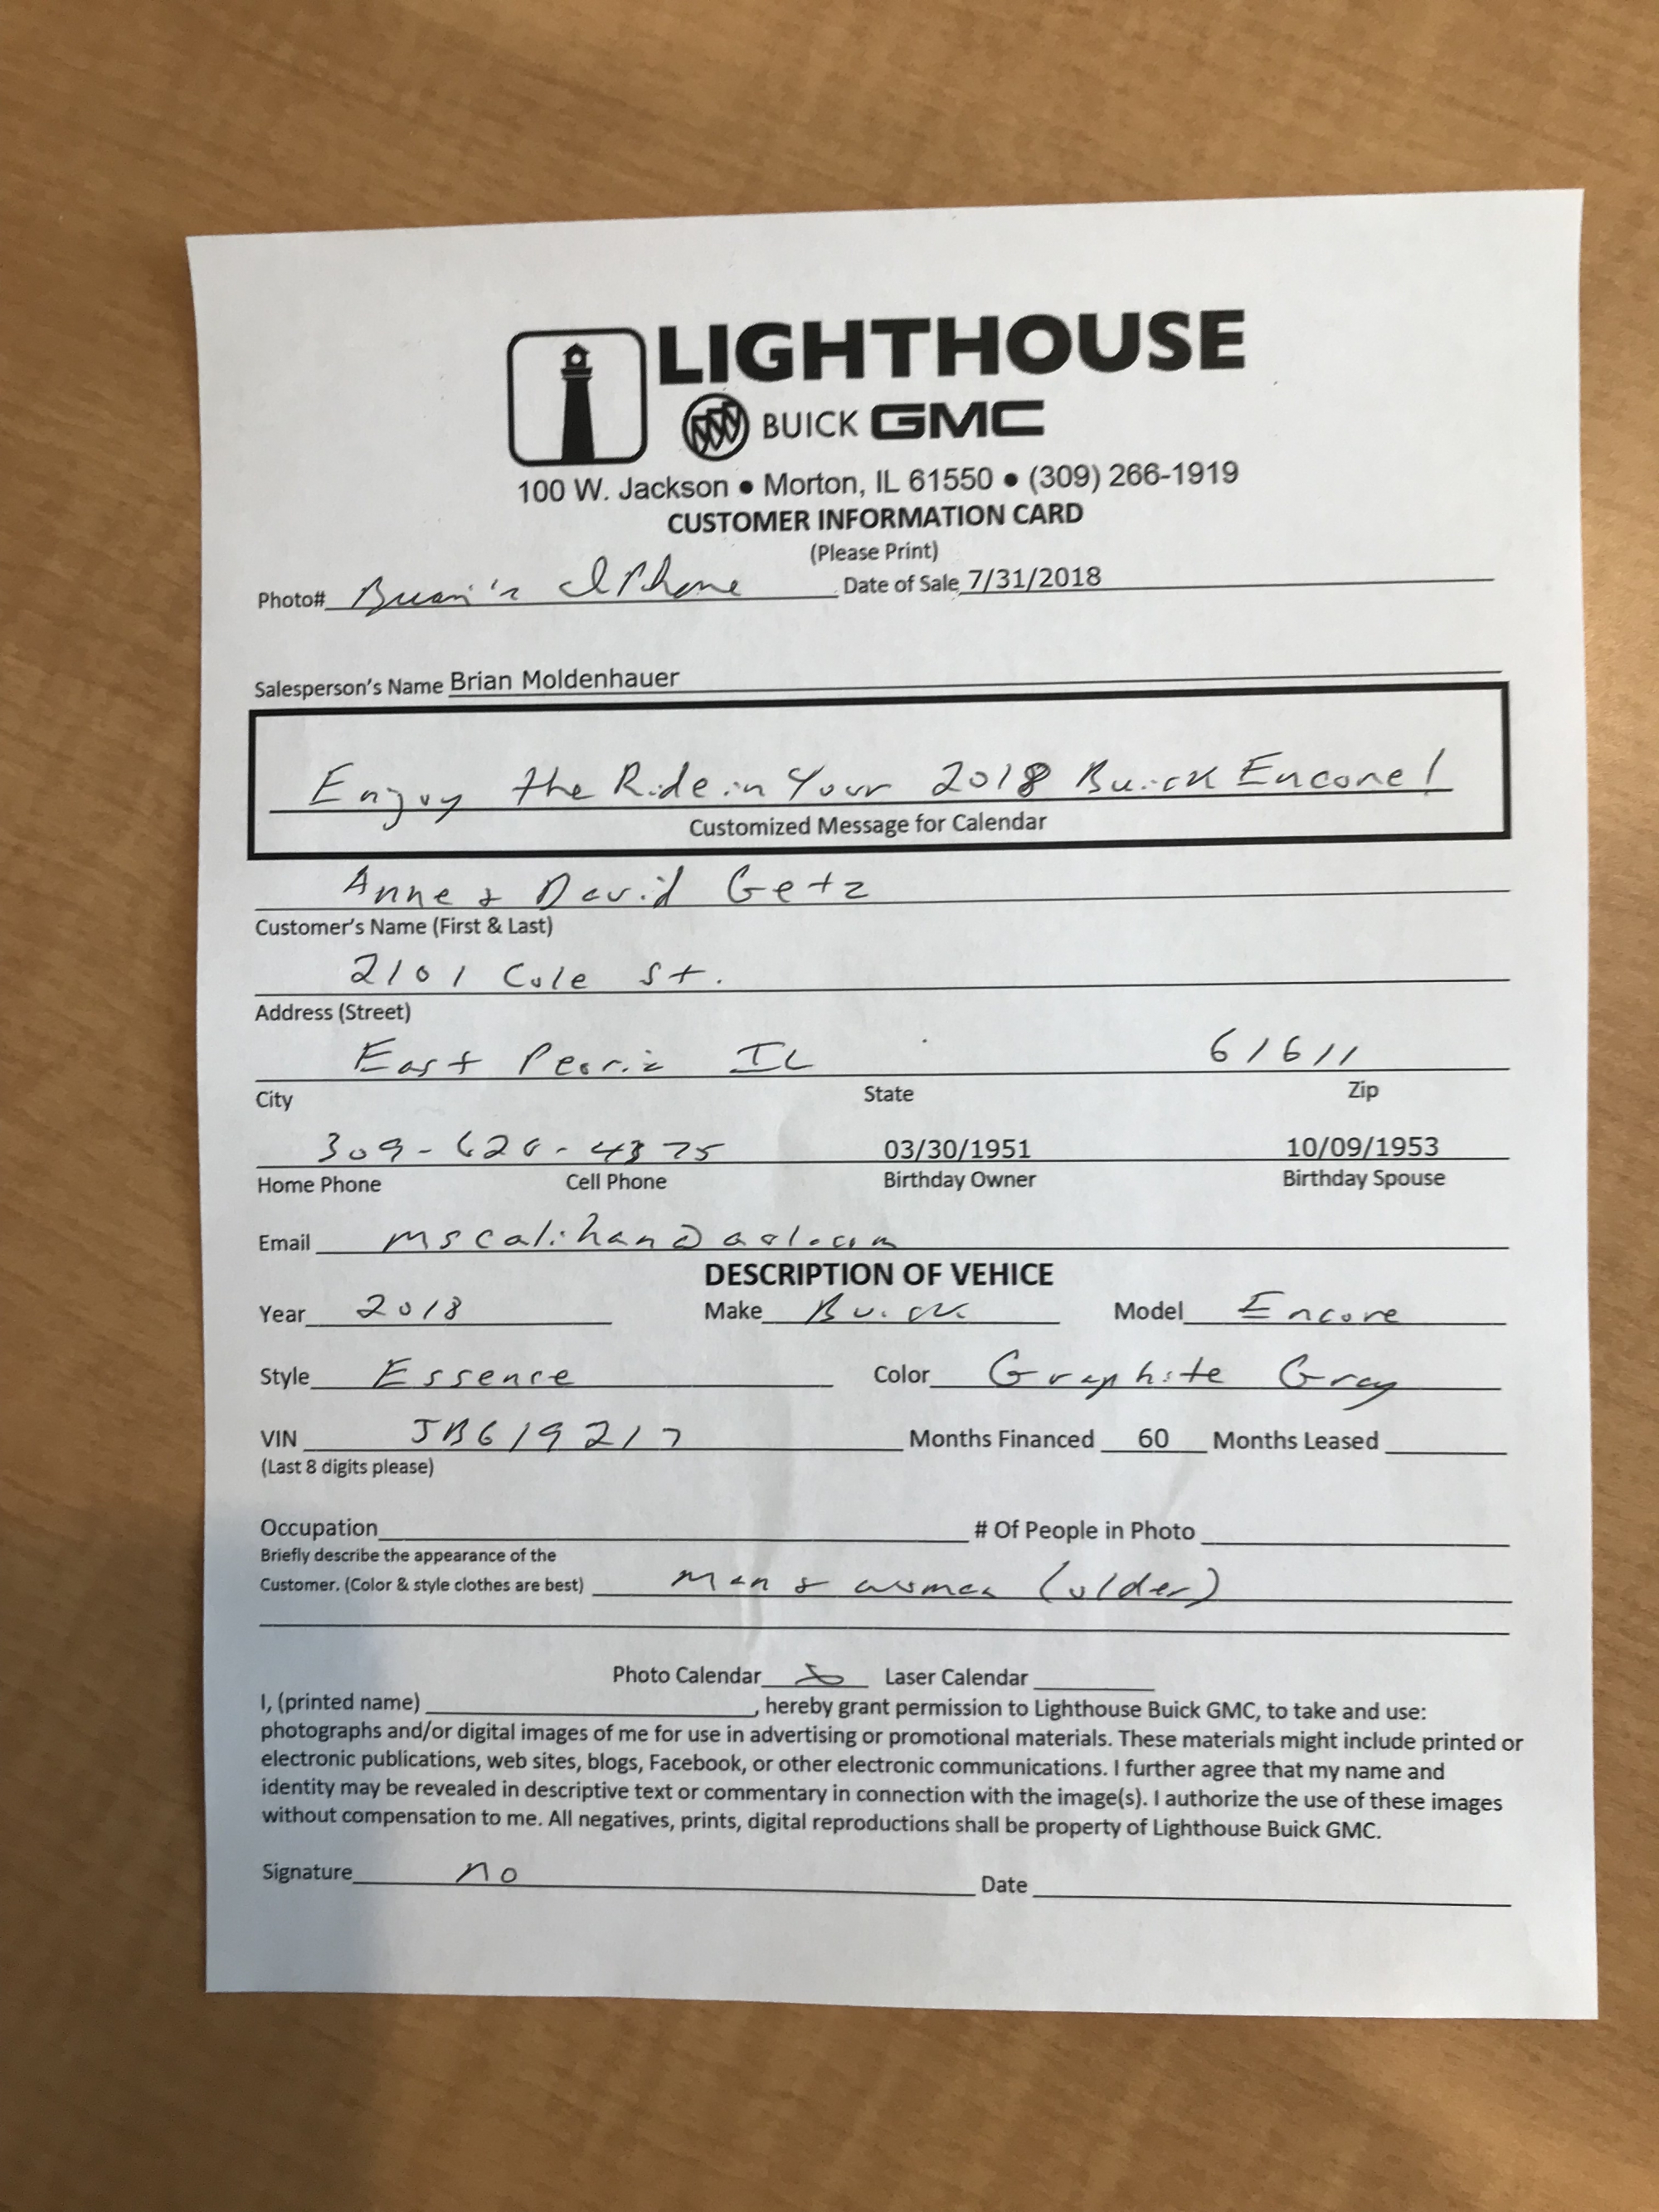 LIGHTHOUSE
BUICK GMC
100 W. Jackson • Morton, IL 61550 • (309) 266-1919
CUSTOMER INFORMATION CARD
(Please Print)
Photo# Brian's IPhone Date of Sale 7/31/2018
Salesperson's Name Brian Moldenhauer
Enjoy the Ride in Your 2018 Buick Encore!
Customized Message for Calendar
Anne & David Getz
Customer's Name (First & Last)
2101 Cole St.
Address (Street)
East Peoria IL 61611
City State Zip
309-620-4375 03/30/1951 10/09/1953
Home Phone Cell Phone Birthday Owner Birthday Spouse
Email mscalihan@aol.com
DESCRIPTION OF VEHICE
Year 2018 Make Buick Model Encore
Style Essence Color Graphite Gray
VIN JB619217 Months Financed 60 Months Leased
(Last 8 digits please)
Occupation # Of People in Photo
Briefly describe the appearance of the
Customer. (Color & style clothes are best) Man & woman (older)
Photo Calendar Laser Calendar
I, (printed name) , hereby grant permission to Lighthouse Buick GMC, to take and use:
photographs and/or digital images of me for use in advertising or promotional materials. These materials might include printed or
electronic publications, web sites, blogs, Facebook, or other electronic communications. I further agree that my name and
identity may be revealed in descriptive text or commentary in connection with the image(s). I authorize the use of these images
without compensation to me. All negatives, prints, digital reproductions shall be property of Lighthouse Buick GMC.
Signature no Date